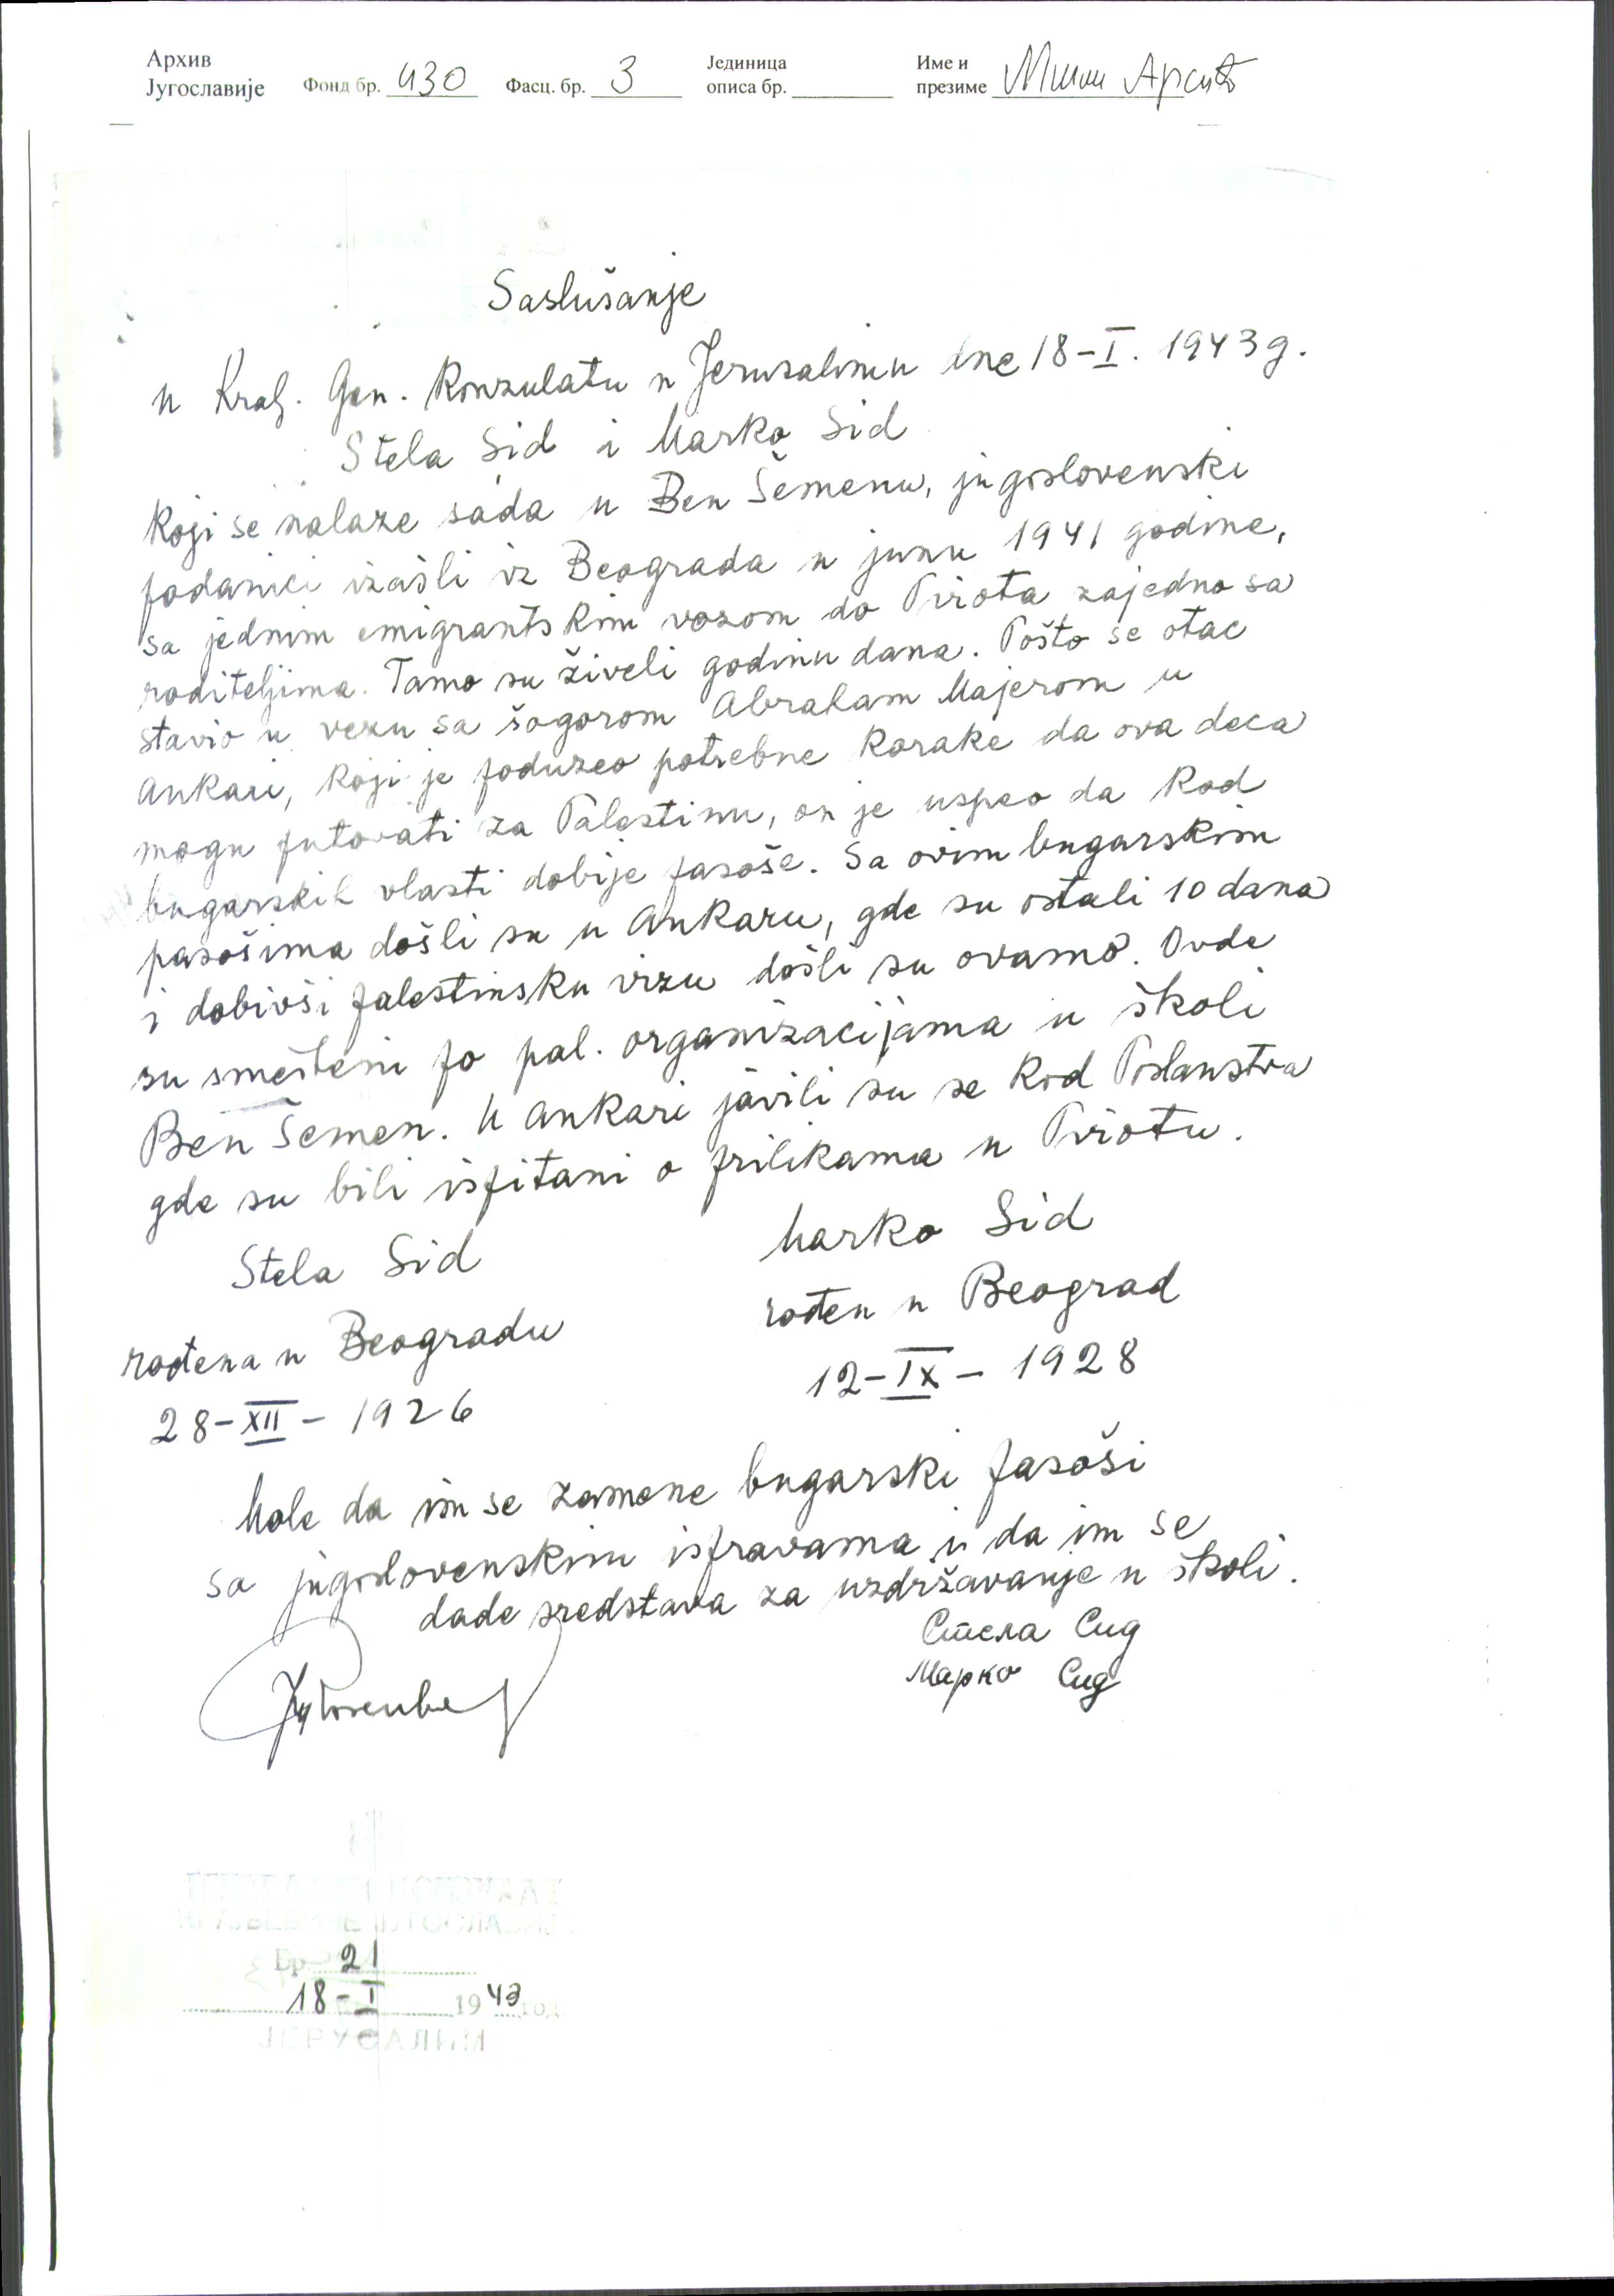 Архив
Југославије Фонд бр. 430 Фасц. бр. 3 Јединица описа бр. Име и презиме Арсић
Saslušanje
u Kralj. Gen. Konzulatu u Jerusalimu dne 18-I. 1943 g.
Stela Sid i Marko Sid
koji se nalaze sada u Ben Šemenu, jugoslovenski
podanici izašli iz Beograda u junu 1941 godine,
sa jednim emigrantskim vozom do Pirota zajedno sa
roditeljima. Tamo su živeli godinu dana. Pošto se otac
stavio u vezu sa šogorom Abraham Majerom u
Ankari, koji je poduzeo potrebne korake da ova deca
mogu putovati za Palestinu, on je uspeo da kod
bugarskih vlasti dobije pasoše. Sa ovim bugarskim
pasošima došli su u Ankaru, gde su ostali 10 dana
i dobivši palestinsku vizu došli su ovamo. Ovde
su smešteni po pal. organizacijama u školi
Ben Šemen. U Ankari javili su se kod Poslanstva
gde su bili ispitani o prilikama u Pirotu.
Stela Sid Marko Sid
rođena u Beogradu rođen u Beograd
28-XII-1926 12-IX-1928
Mole da im se zamene bugarski pasoši
sa jugoslovenskim ispravama i da im se
dade sredstava za uzdržavanje u školi.
Стела Сид
Марко Сид
КРАЉЕВИНЕ ЈУГОСЛАВИЈЕ
Бр. 21
18-I 1943 год.
ЈЕРУСАЛИМ